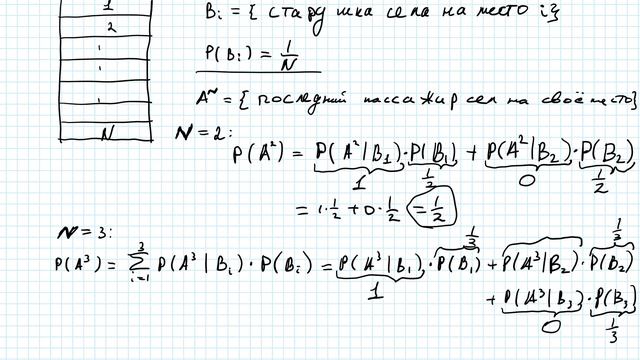 1
2
N
Bᵢ = { старушка села на место i}
P(Bᵢ) = 1/N
Aᴺ = { последний пассажир сел на своё место}
N=2:
P(A²) = P(A²|B₁)·P(B₁) + P(A²|B₂)·P(B₂)
1 1/2 0 1/2
= 1·1/2 + 0·1/2 = 1/2
N=3:
1/3 1/3
P(A³) = ∑³ᵢ₌₁ P(A³|Bᵢ)·P(Bᵢ) = P(A³|B₁)·P(B₁) + P(A³|B₂)·P(B₂)
1
+ P(A³|B₃)·P(B₃)
0 1/3